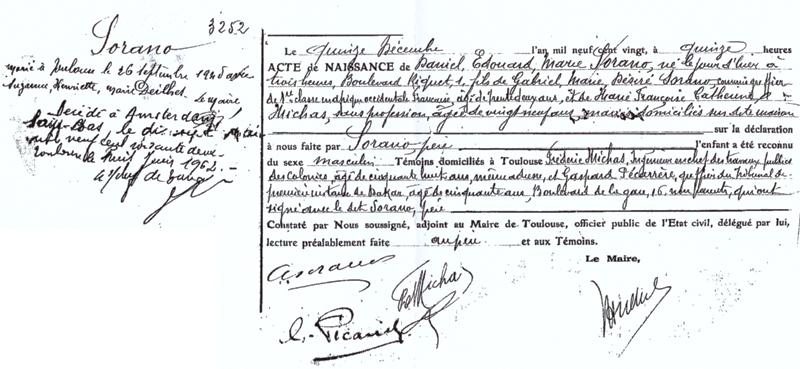 3252
Sorano
marié à Toulouse le 26 Septembre 1945 avec
Suzanne, Henriette, Marie Deilhes. Le Maire,
Décédé à Amsterdam,
Pays-Bas, le dix sept
mil neuf cent soixante deux.
Toulouse le huit Juin 1962.-
Le quinze Décembre l'an mil neuf cent vingt, à quinze heures
ACTE de NAISSANCE de Daniel, Edouard, Marie Sorano, né le jour d'hier à
trois heures, Boulevard Riquet 1, fils de Gabriel, Marie, Désiré Sorano, commis greffier
de 1re classe en Afrique occidentale Française, âgé de trente deux ans, et de Marie Françoise Catherine
Michas, sans profession, âgée de vingt neuf ans, mariés domiciliés sur dite maison
sur la déclaration
à nous faite par Sorano père l'enfant a été reconnu
du sexe masculin Témoins domiciliés à Toulouse Frédéric Michas, Ingénieur en chef des travaux publics
des Colonies, âgé de cinquante huit ans, même adresse, et Gaspard Pécarrère, greffier du Tribunal de
première instance de Dakar, âgé de cinquante ans, Boulevard de la gare, 16, non parents, qui ont
signé avec le dit Sorano, père
Constaté par Nous soussigné, adjoint au Maire de Toulouse, officier public de l'Etat civil, délégué par lui,
lecture préalablement faite au père et aux Témoins.
Le Maire,
GSorano
Michas